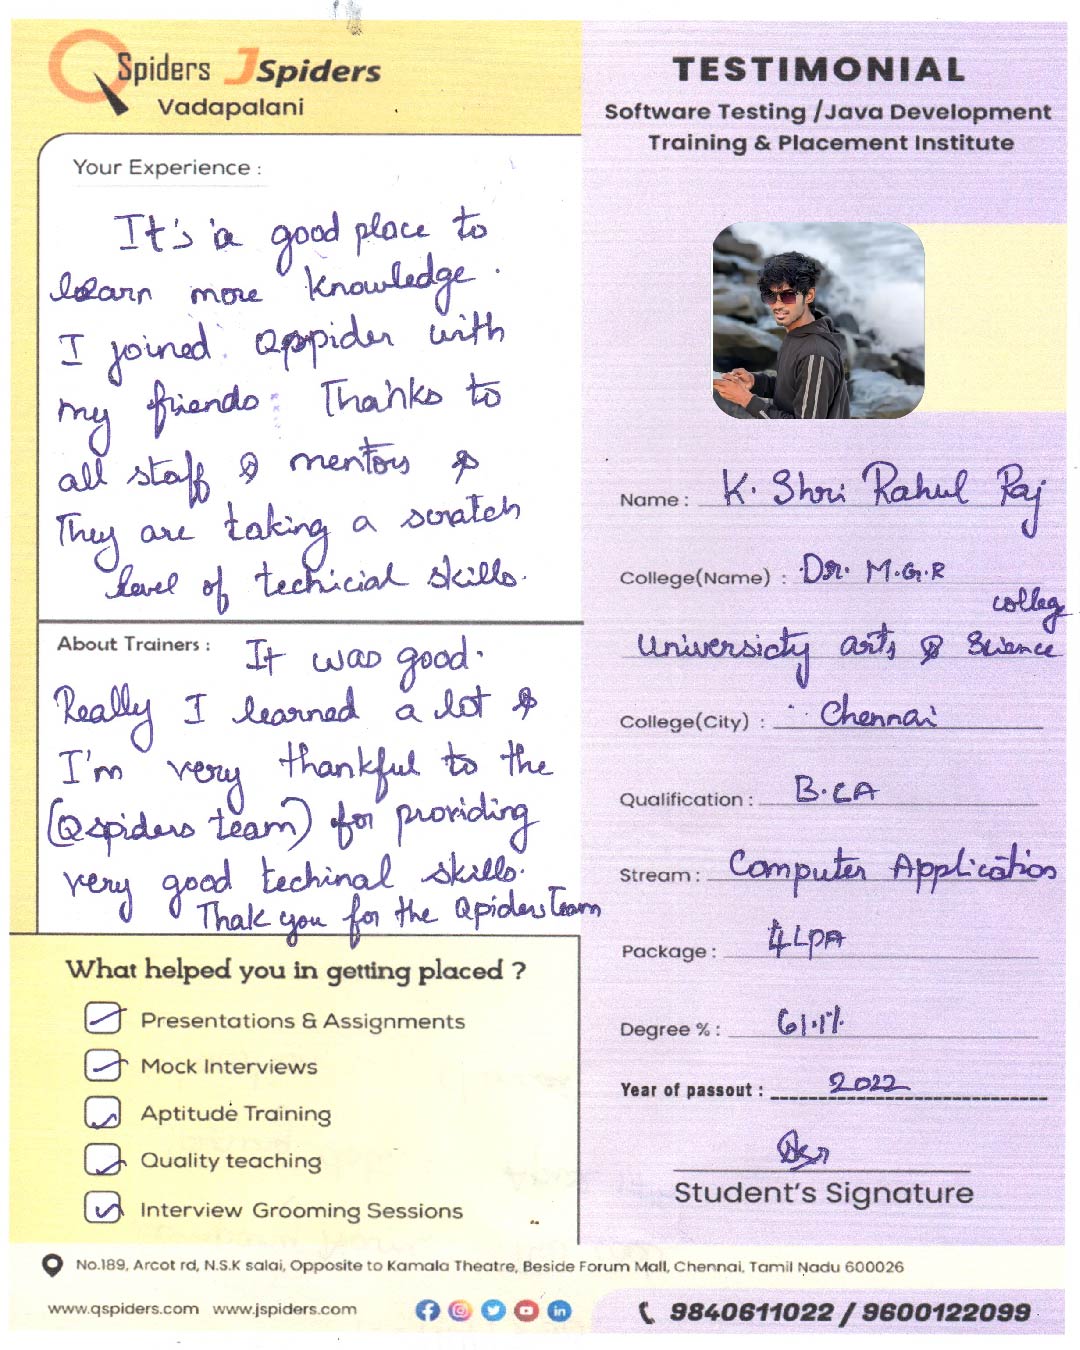 QSpiders JSpiders
Vadapalani
Your Experience :
It's a good place to
learn more knowledge.
I joined Qspider with
my friends. Thanks to
all staff & mentors &
They are taking a scratch
level of techicial skills.
About Trainers : It was good.
Really I learned a lot &
I'm very thankful to the
(Qspiders team) for providing
very good techinal skills.
Thak you for the Qpiders Team
What helped you in getting placed ?
Presentations & Assignments
Mock Interviews
Aptitude Training
Quality teaching
Interview Grooming Sessions
TESTIMONIAL
Software Testing /Java Development
Training & Placement Institute
Name : K. Shri Rahul Raj
College(Name) : Dr. M.G.R
colleg
Universicty arts & Science
College(City) : Chennai
Qualification : B.CA
Stream : Computer Application
Package : 4LPA
Degree % : 61.1%
Year of passout : 2022
Student's Signature
No.189, Arcot rd, N.S.K salai, Opposite to Kamala Theatre, Beside Forum Mall, Chennai, Tamil Nadu 600026
www.qspiders.com www.jspiders.com
9840611022 / 9600122099